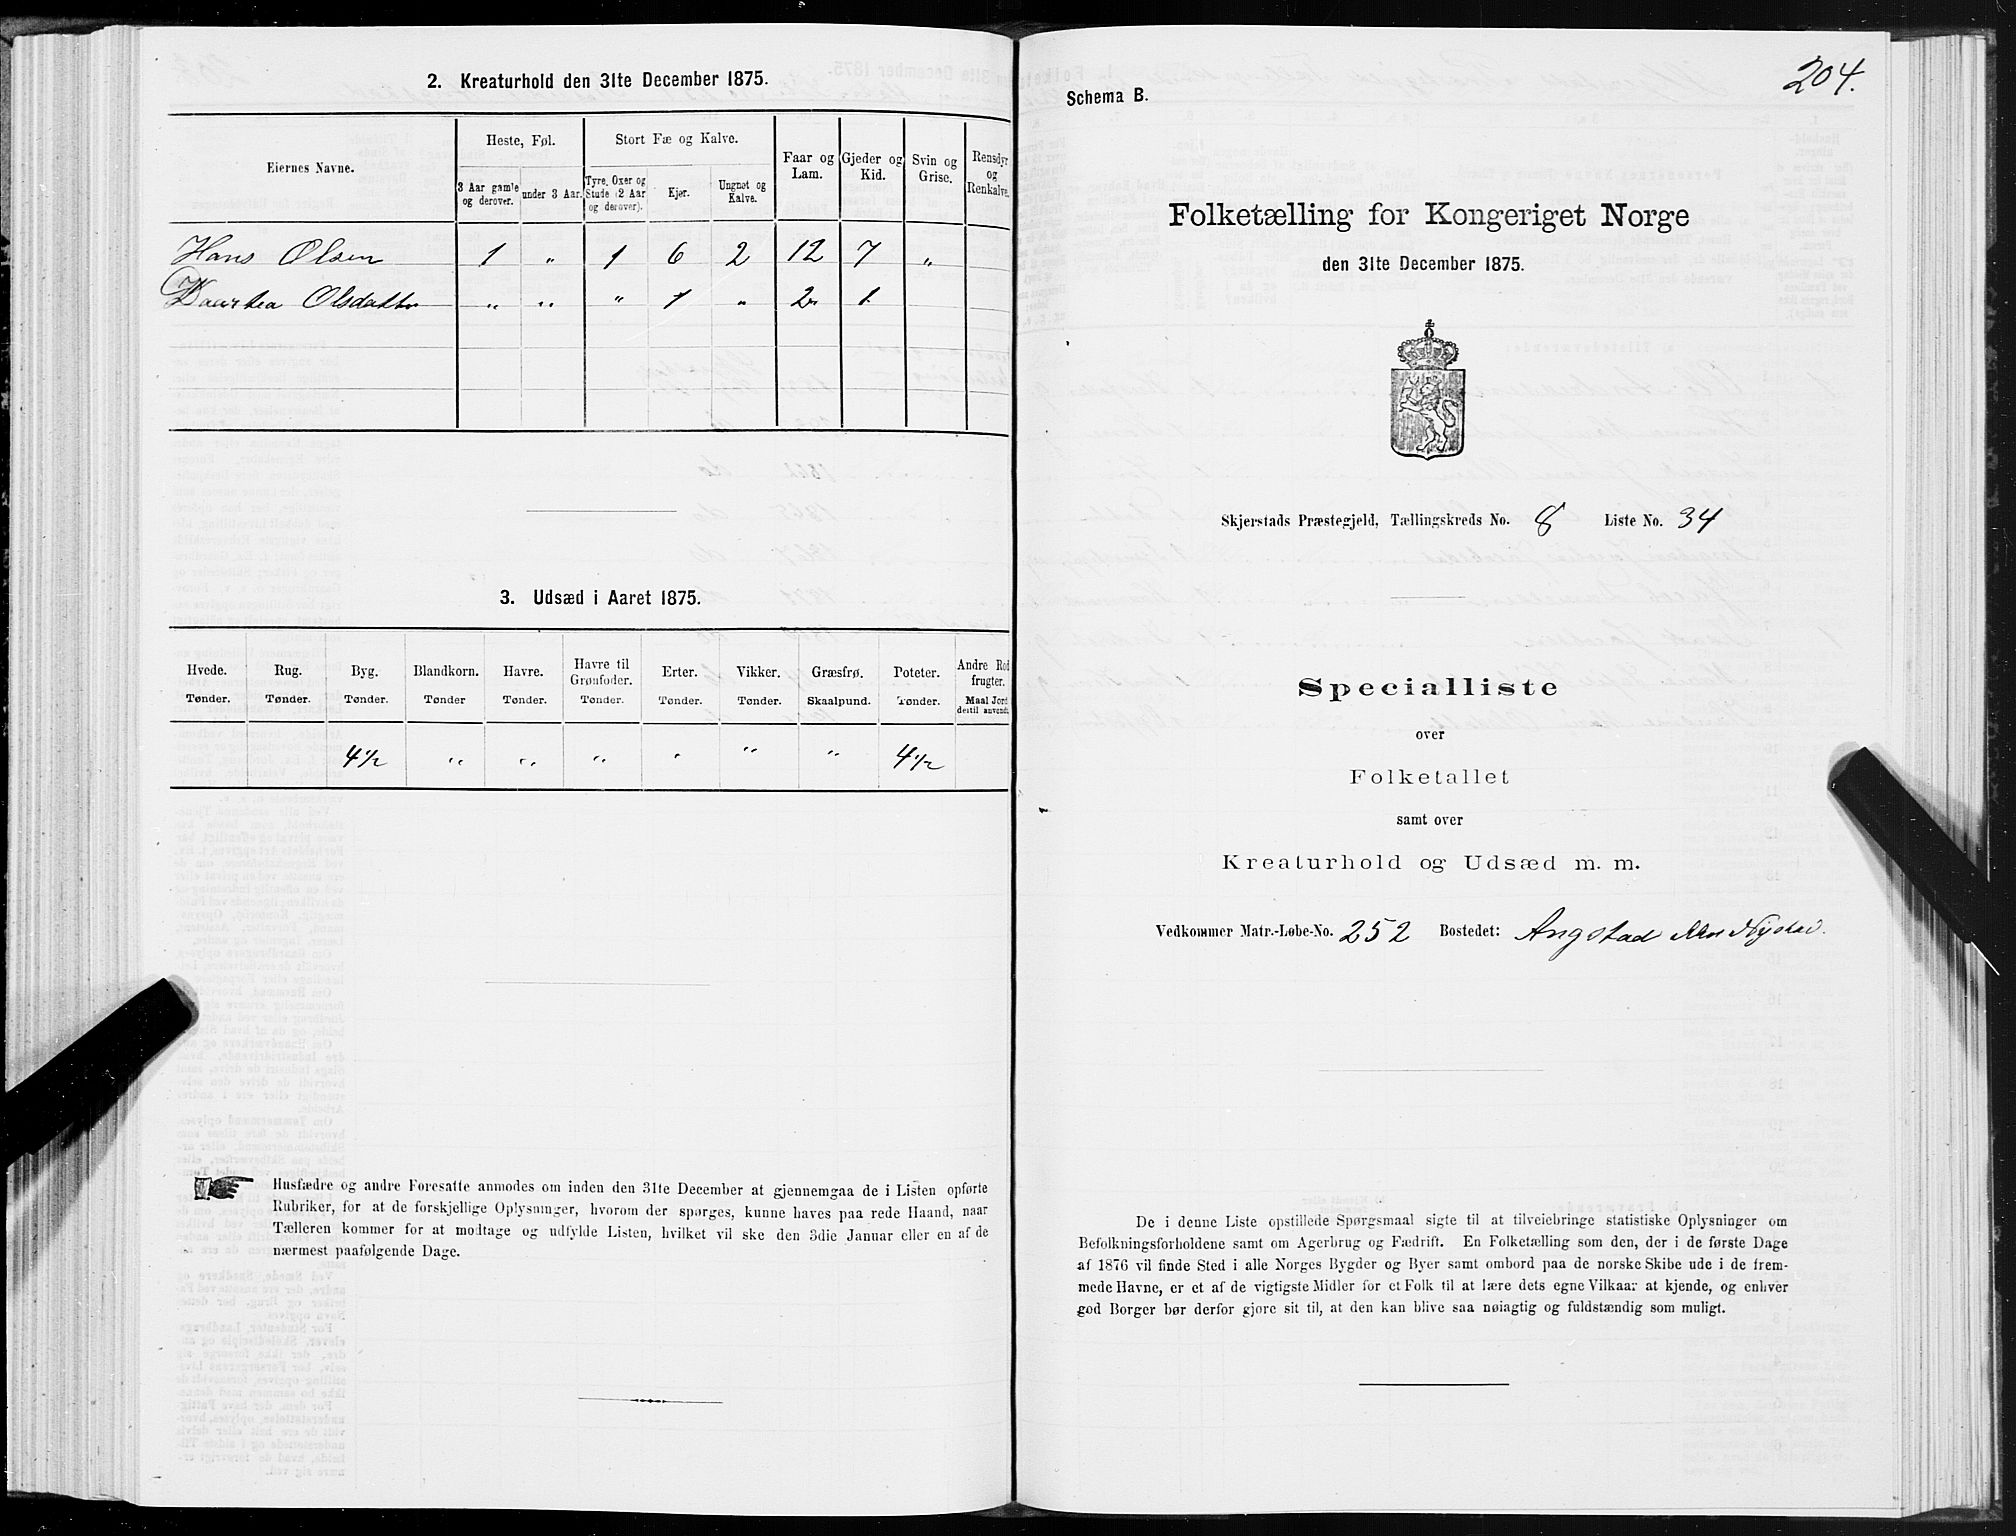 2. Kreaturhold den 31te December 1875.
Eiernes Navne.
Heste, Føl.
Stort Fæ og Kalve.
Faar og Lam.
Gjeder og Kid.
Svin og Grise.
Rensdyr og Renkalve.
3 Aar gamle og derover.
under 3 Aar.
Tyre, Oxer og Stude (2 Aar og derover).
Kjør.
Ungnøt og Kalve.
Hans Olsen 1 " 1 6 2 12 7 "
Olsdatter " " " 1 " 2 1
3. Udsæd i Aaret 1875.
Hvede. Rug. Byg. Blandkorn. Havre. Havre til Grønfoder. Erter. Vikker. Græsfrø. Poteter. Andre Rodfrugter.
Tønder. Tønder. Tønder. Tønder Tønder. Tønder. Tønder. Tønder. Skaalpund. Tønder. Maal Jord dertil anvendt.
4½ " " " " " " 4½
Husfædre og andre Foresatte anmodes om inden den 31te December at gjennemgaa de i Listen opførte
Rubriker, for at de forskjellige Oplysninger, hvorom der spørges, kunne haves paa rede Haand, naar
Tælleren kommer for at modtage og udfylde Listen, hvilket vil ske den 3die Januar eller en af de
nærmest paafølgende Dage.
204.
Schema B.
Folketælling for Kongeriget Norge
den 31te December 1875.
Skjerstads Præstegjeld, Tællingskreds No. 8 Liste No. 34
Specialliste
over
Folketallet
samt over
Kreaturhold og Udsæd m. m.
Vedkommer Matr.-Løbe-No. 252 Bostedet: Angstad Nystad.
De i denne Liste opstillede Spørgsmaal sigte til at tilveiebringe statistiske Oplysninger om
Befolkningsforholdene samt om Agerbrug og Fædrift. En Folketælling som den, der i de første Dage
af 1876 vil finde Sted i alle Norges Bygder og Byer samt ombord paa de norske Skibe ude i de frem-
mede Havne, er et af de vigtigste Midler for et Folk til at lære dets egne Vilkaar at kjende, og enhver
god Borger bør derfor gjøre sit til, at den kan blive saa nøiagtig og fuldstændig som muligt.